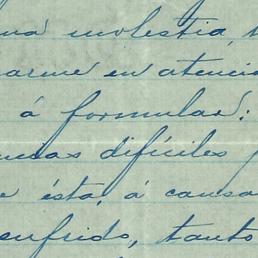 una molestia,
arme en atenció
á formular:
difíciles
e ésta, á causa
enfrido, tanto